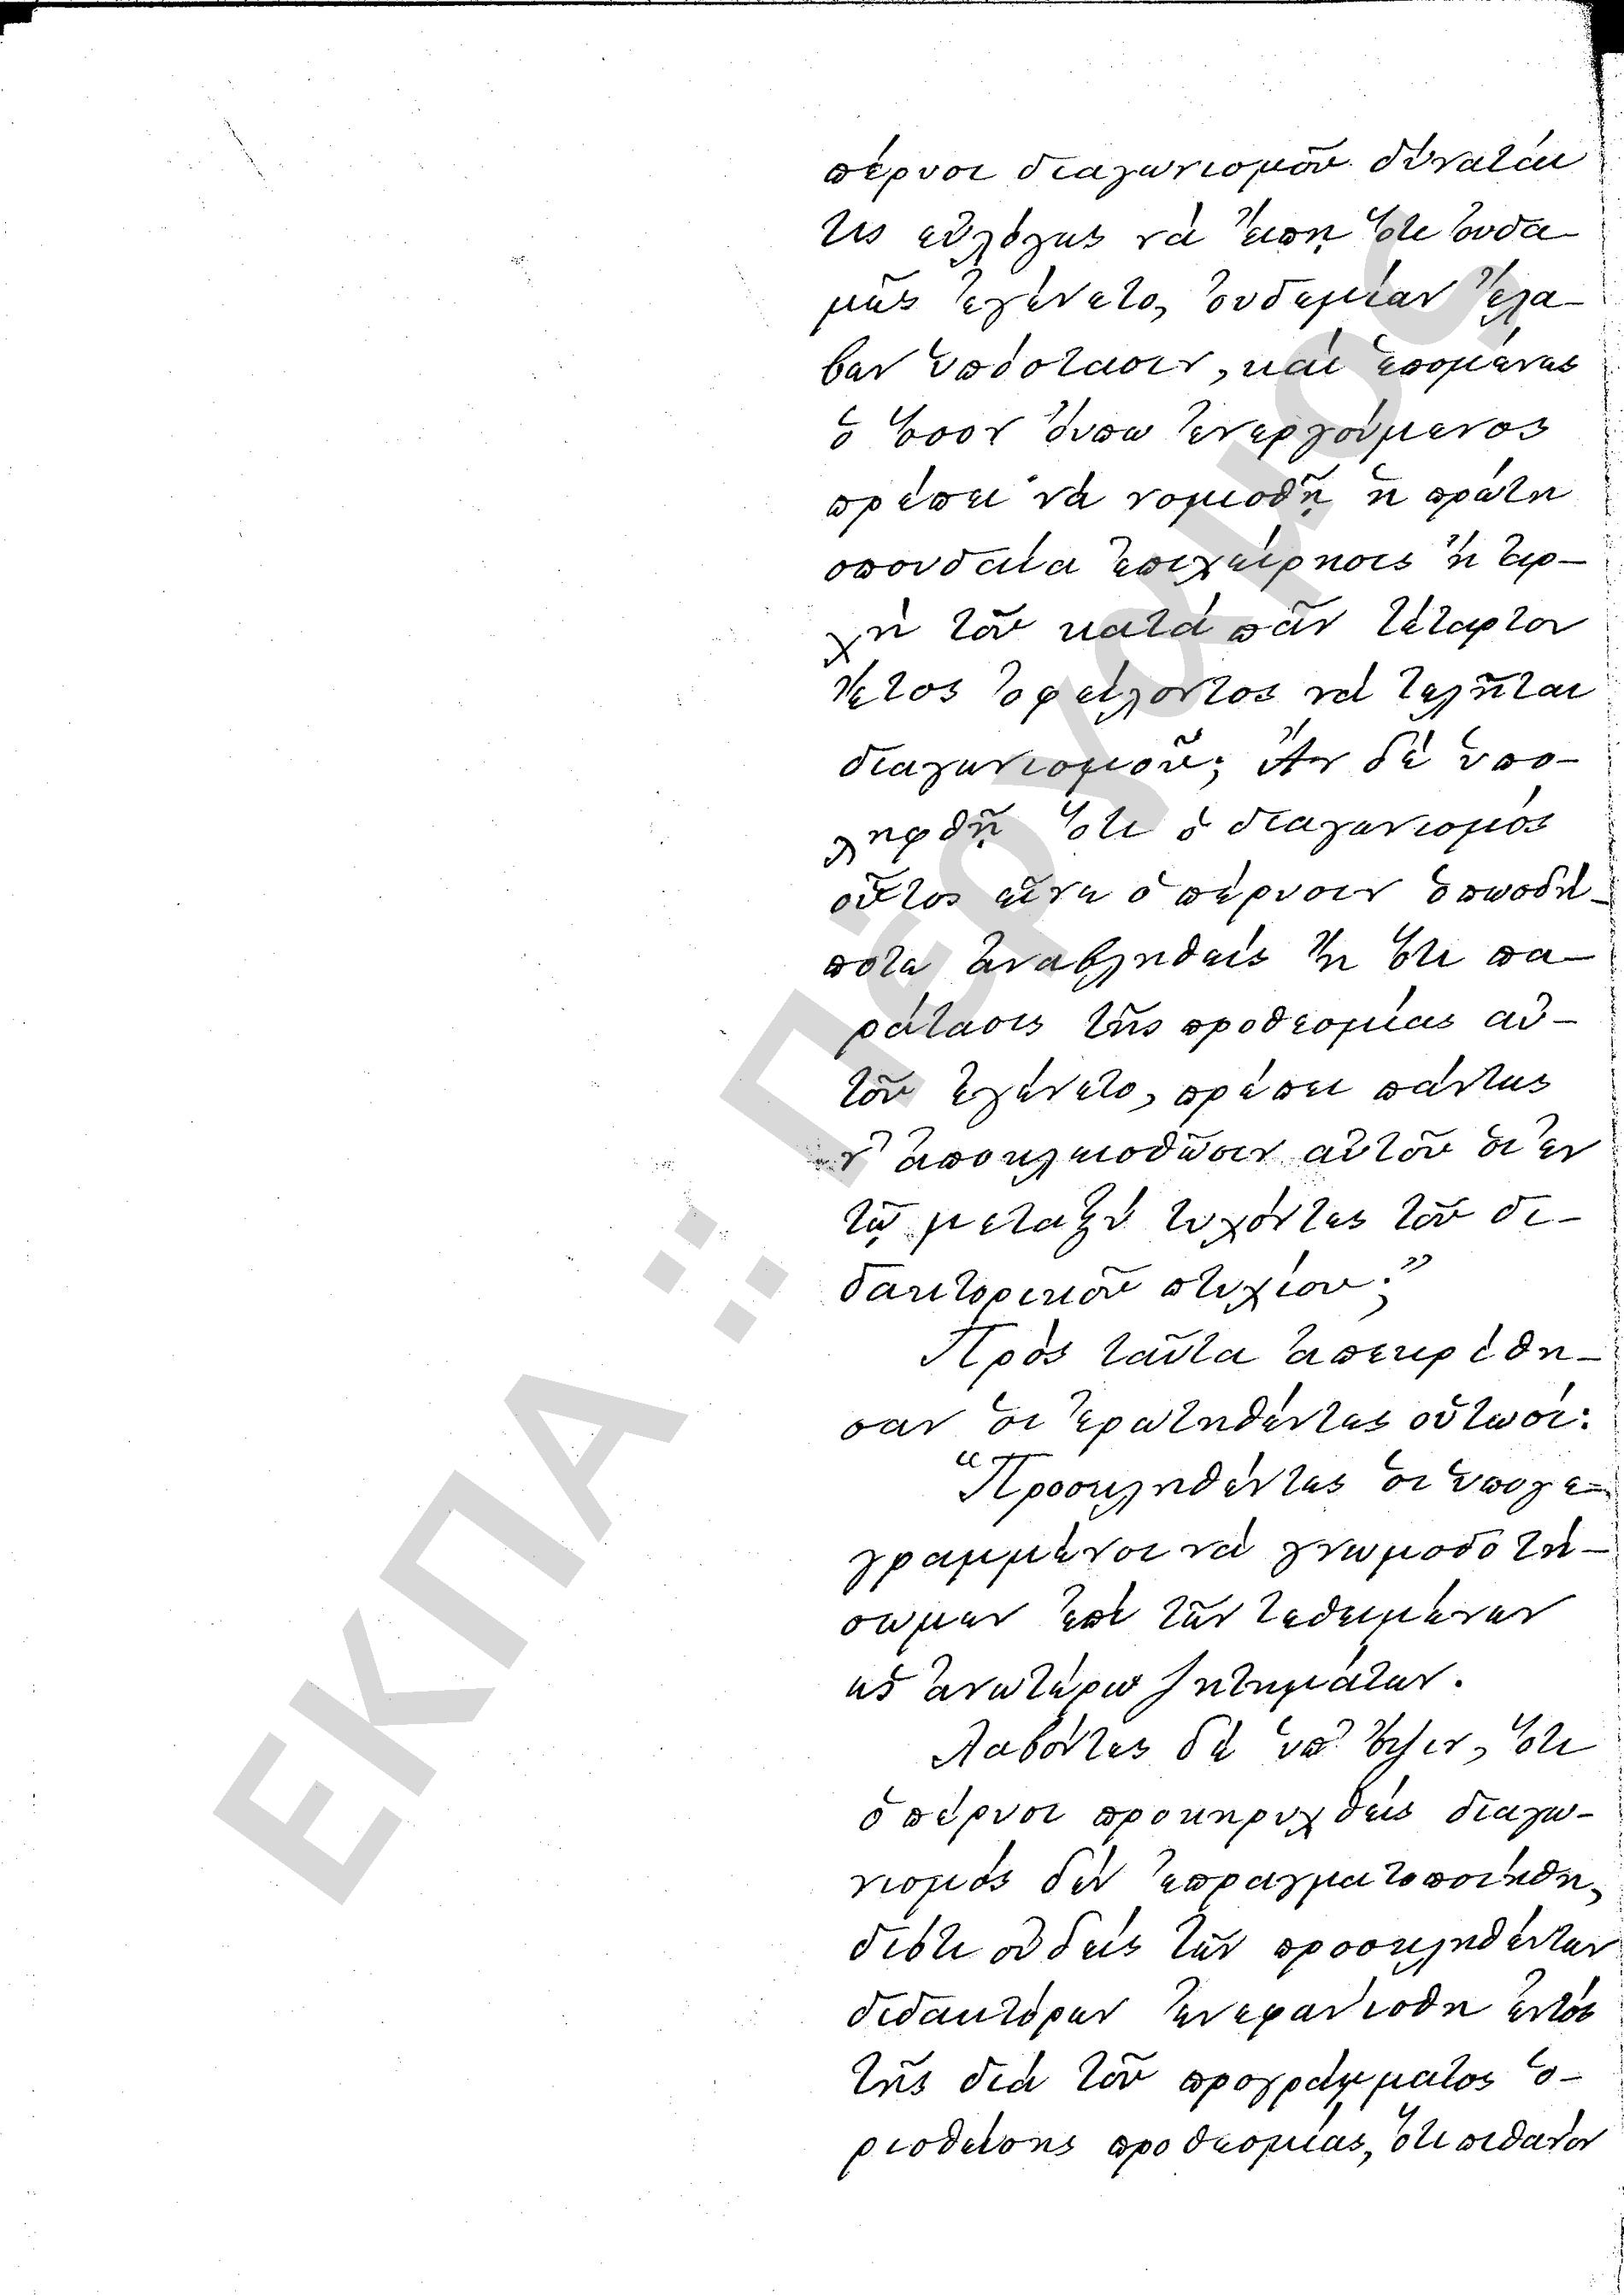 πέρυσι διαγωνισμοῦ δύναταί
τις εὐλόγως νὰ εἴπῃ ὅτι οὐδα-
μῶς ἐγένετο, οὐδεμίαν ἔλα-
βεν ὑπόστασιν, καὶ ἑπομένως
ὁ ὅσον οὔπω ἐνεργούμενος
πρέπει νὰ νομισθῇ ἡ πρώτη
σπουδαία ἐπιχείρησις ἢ ἀρ-
χὴ τοῦ κατὰ πᾶν τέταρτον
ἔτος ὀφείλοντος νὰ τελῆται
διαγωνισμοῦ; Ἂν δὲ ὑπο-
ληφθῇ ὅτι ὁ διαγωνισμὸς
οὗτος εἶνε ὁ πέρυσιν ὁπωσδή-
ποτε ἀναβληθεὶς ἢ ὅτι πα-
ράτασις τῆς προθεσμίας αὐ-
τοῦ ἐγένετο, πρέπει πάντως
ν' ἀποκλεισθῶσιν αὐτοῦ οἱ ἐν
τῷ μεταξὺ τυχόντες τοῦ δι-
δακτορικοῦ πτυχίου;"
Πρὸς ταῦτα ἀπεκρίθη-
σαν οἱ ἐρωτηθέντες οὑτωσί:
"Προσκληθέντες οἱ ὑπογε-
γραμμένοι νὰ γνωμοδοτή-
σωμεν ἐπὶ τῶν τεθειμένων
ὡς ἀνωτέρω ζητημάτων.
Λαβόντες δὲ ὑπ' ὄψιν, ὅτι
ὁ πέρυσι προκηρυχθεὶς διαγω-
νισμὸς δὲν ἐπραγματοποιήθη,
διότι οὐδεὶς τῶν προσκληθέντων
διδακτόρων ἐνεφανίσθη ἐντὸς
τῆς διὰ τοῦ προγράμματος ὁ-
ρισθείσης προθεσμίας, ὅτι πιθανὸν
ΕΚΠΑ :: Πέργαμος